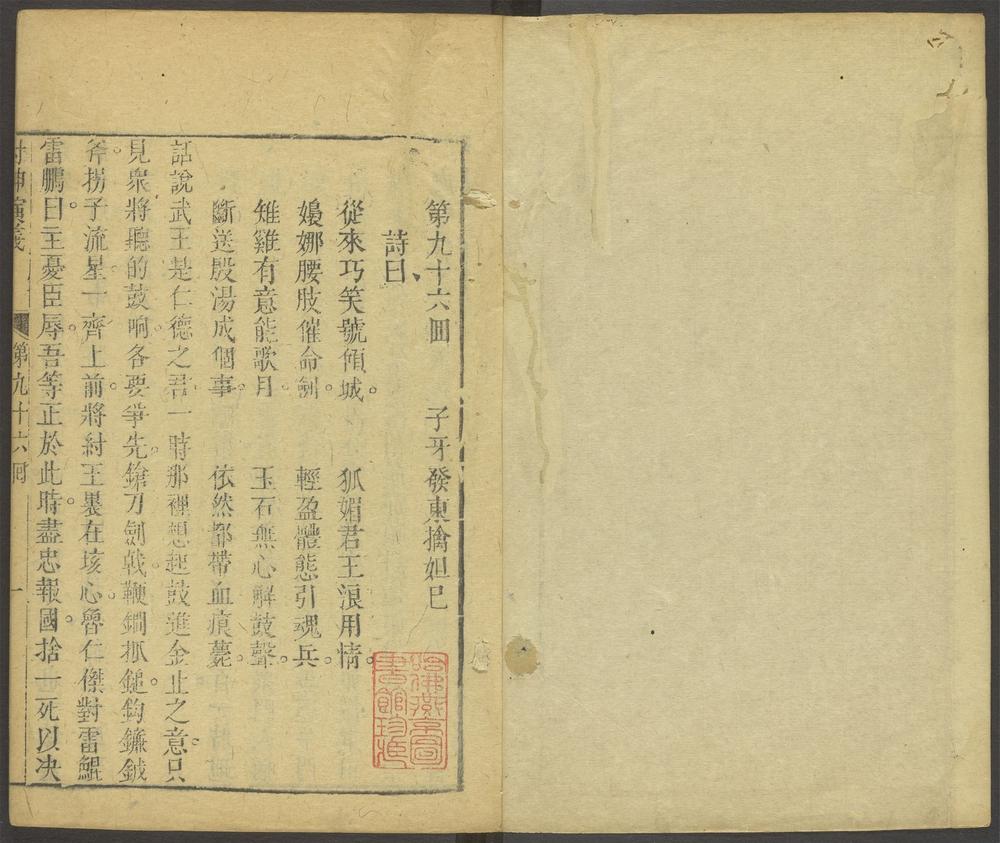 第九十六囬　子牙發柬擒妲己
詩曰
從來巧笑號傾城。　狐媚君王浪用情。
嬝娜腰肢催命劍。　輕盈體態引魂兵。
雉雞有意能歌月　玉石無心解鼓聲。
斷送殷湯成個事。　依然都帶血痕薨。
話說武王是仁德之君一時那裡想起鼓進金止之意。只
見衆將聽的鼓响各要爭先。鎗刀劍戟。鞭鐧抓鎚。鈎鐮鉞
斧。拐子流星一齊上前。將紂王裹在垓心。魯仁傑對雷鯤
雷鵬曰。主憂臣辱。吾等正於此時。盡忠報國。捨一死以决
封神演義　第九十六囘　一
哈佛燕京圖
書館珍藏